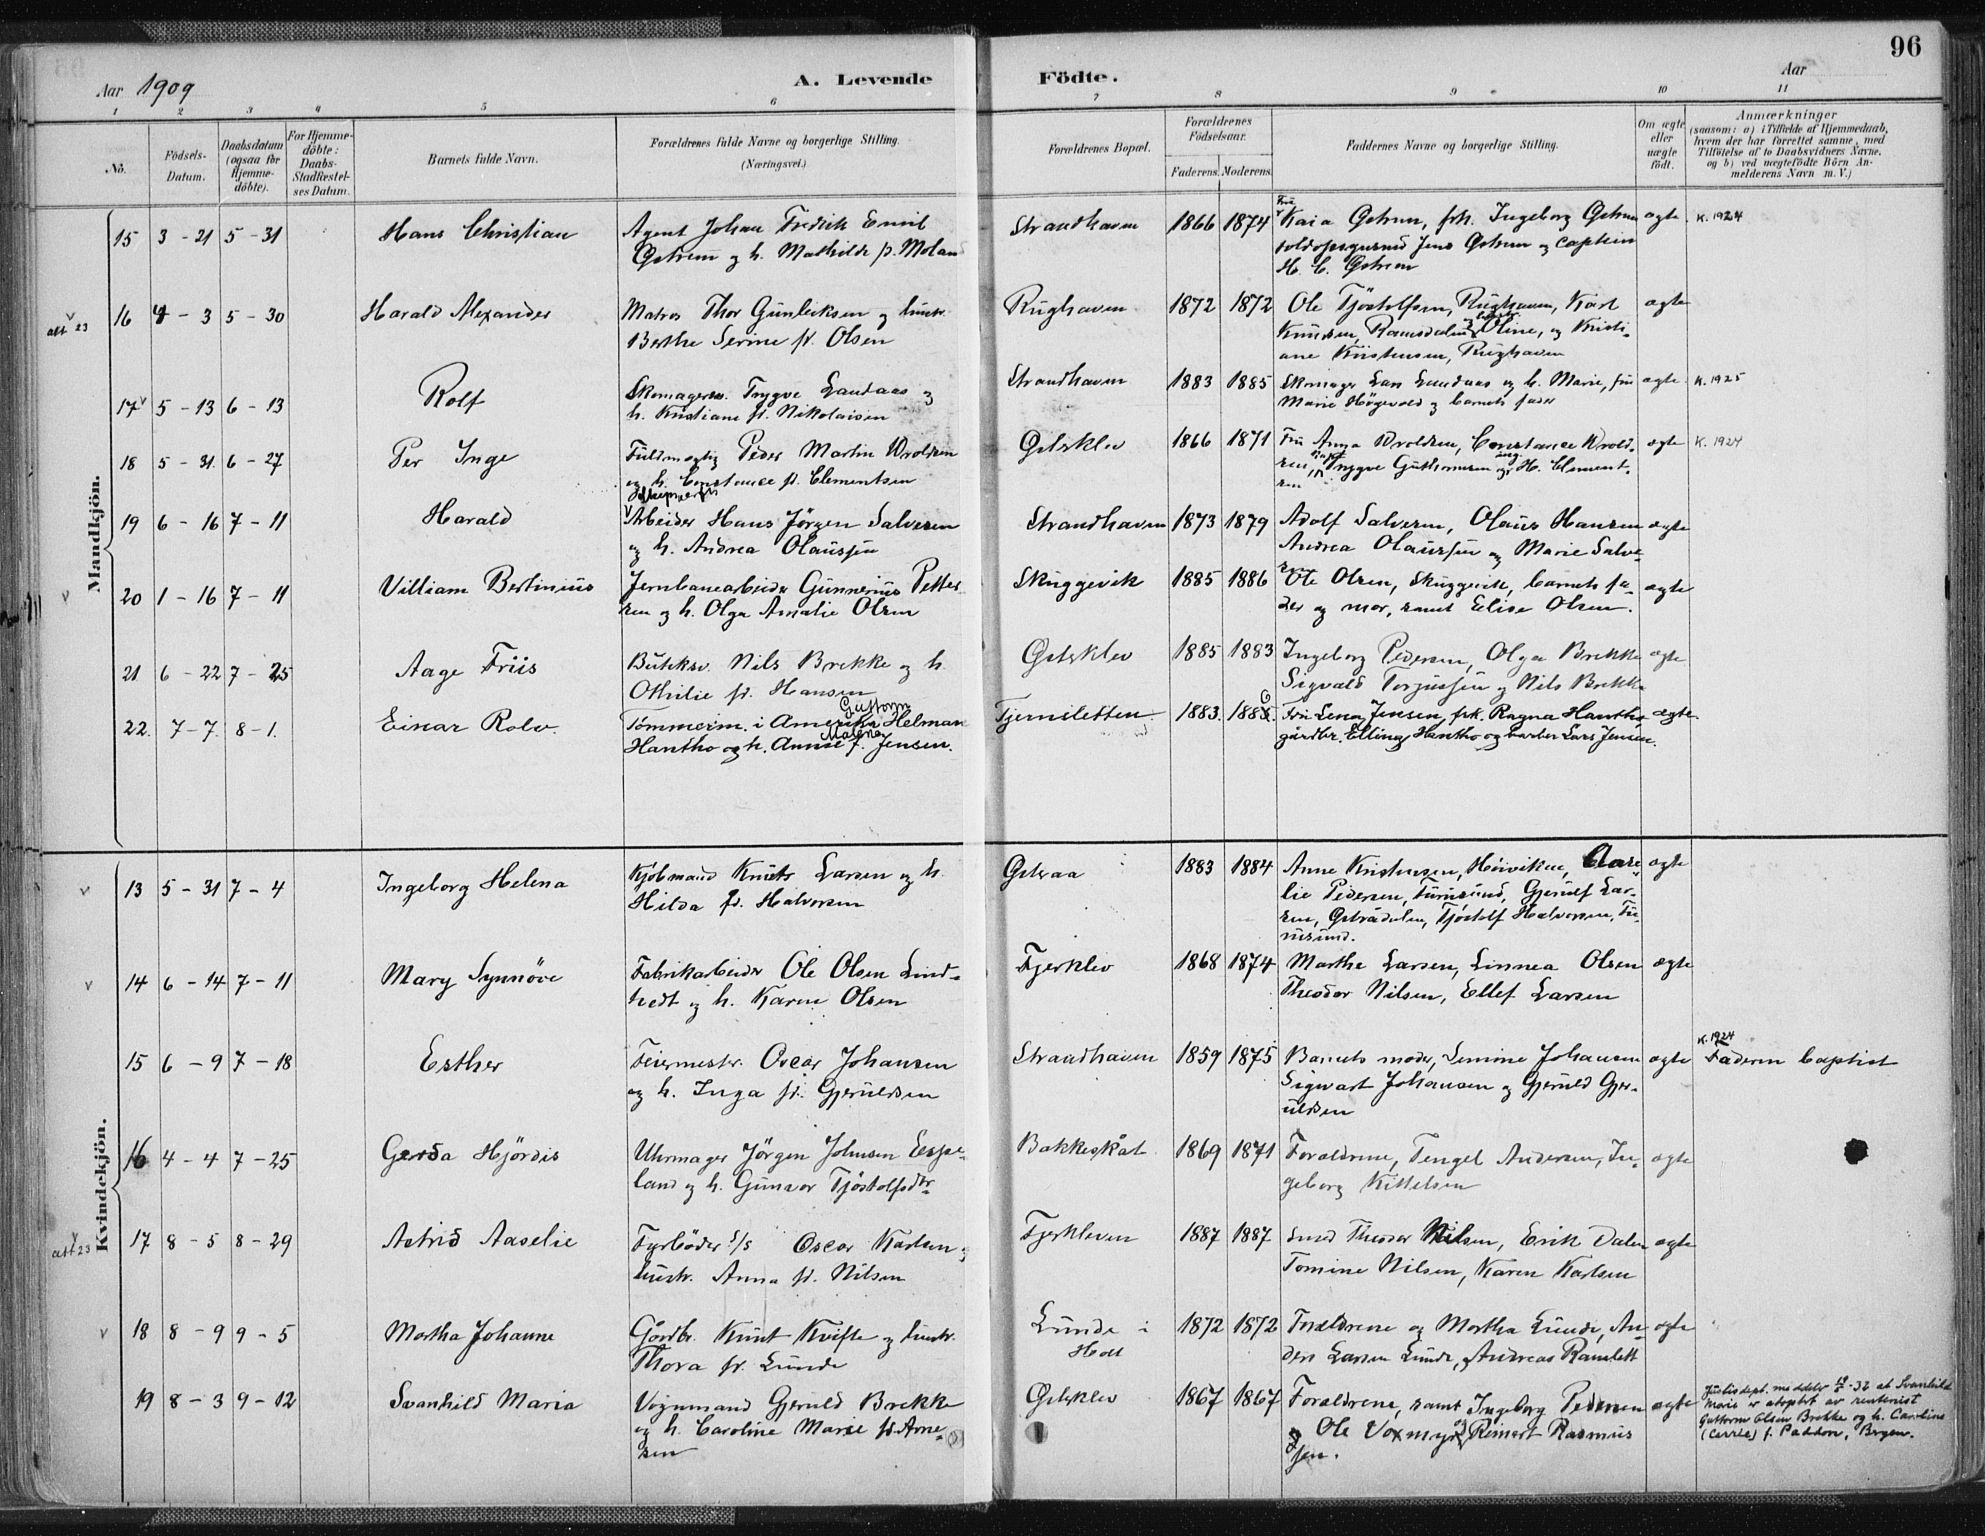 96
Aar 1909
A. Levende Födte.
Aar
1 2 3 4 5 6 7 8 9 10 11
No.
Födsels-Datum.
Daabsdatum (ogsaa for Hjemme-döbte).
For Hjemme-döbte: Daabs-Stadfæstel-ses Datum.
Barnets fulde Navn.
Forældrenes fulde Navne og borgerlige Stilling. (Næringsvei.)
Forældrenes Bopæl.
Forældrenes Födselsaar.
Faderens. Moderens.
Faddernes Navne og borgerlige Stilling.
Om ægte eller uægte födt.
Anmærkninger
(saasom: a) i Tilfælde af Hjemmedaab, hvem der har forrettet samme, med Tilföielse af to Daabsvidners Navne, og b) ved uægtefödte Börn An-melderens Navn m. V.)
Mandkjön.
15 3 - 21 5 - 31 Hans Christian
Agent Johan Fredrik Emil
Østrem og h. Mathilde f. Moland
Strandhaven 1866 1874
Fru Kaia Østrem, frk. Ingeborg Østrem
Jens Østrem og captein
H. C. Østrem
ægte K. 1924
att 23
16 4 - 3 5 - 30 Harald Alexander
Matros Thor Gunleiksen og hustr.
Berthe Serine fd. Olsen
Rughaven 1872 1872
Ole Tjöstolfsen, Rughaven, Karl
Knudsen, Ramsdalen, Oline, og Kristi-
ane Kristensen, Rughaven
ægte
17 5 - 13 6 - 13 Rolf
Skomagersv. Trygve Landaas og
h. Kristiane fd. Nikolaisen
Strandhaven 1883 1885
Skomager Lars Landaas og h. Marie, fru
Marie Högevold og barnets fader
ægte K. 1925
18 5 - 31 6 - 27 Per Inge
Fuldmægtig Peder Martin Wroldsen
og h. Constance fd. Clementsen
Østeklev 1866 1871
Fru Anna Wroldsen, Constance Wrold-
sen, Trygve Guttormsen og H. Clement-
sen
ægte K. 1924
19 6 - 16 7 - 11 Harald
Arbeider Hans Jörgen Salvesen
og h. Andrea Olaussen
Strandhaven 1873 1879
Adolf Salvesen, Olaus Hansen
Andrea Olaussen og Marie Salve-
sen
ægte
20 1 - 16 7 - 11 Villiam Bertinius
Jernbanearbeider Gunnerius Petter-
sen og h. Olga Amalie Olsen
Skuggevik 1885 1886
Ole Olsen, Skuggevik, barnets fa-
der og mor, samt Elise Olsen.
ægte
21 6 - 22 7 - 25 Aage Friis
Butiksv. Nils Brekke og h.
Othilie fd. Hansen
Østeklev 1885 1883
Ingeborg Pedersen, Olga Brekke
Sigvald Torjussen og Nils Brekke
ægte
22. 7 - 7. 8 - 1. Einar Rolv.
Guttorm
Tømmerm. i Amerika Helman
Malena
Hantho og h. Annie f. Jensen.
Tjernsletten. 1883.
Fru Lena Jensen, frk. Ragna Hantho
gårdbr. Elling Hantho og barber Lars Jensen.
ægte.
Kvindekjön.
13 5 - 31 7 - 4 Ingeborg Helena
Kjöbmand Knut Larsen og h.
Hilda fd. Halvorsen
Østeraa 1883 1884
Anne Kristensen, Höiviken, Aase-
lie Pedersen, Furusund, Gjerulf Lar-
sen, Østrådalen, Tjöstolf Halvorsen, Fu-
rusund.
ægte
14 6 - 14 7 - 11 Mary Synnöve
Fabrikarbeider Ole Olsen Lind-
tvedt og h. Karen Olsen
Fjerklev 1868 1874
Marthe Larsen, Linnea Olsen
Theodor Nilsen, Ellef Larsen
ægte
15 6 - 9 7 - 18 Esther
Feiermester Oscar Johansen
og h. Inga fd. Gjeruldsen
Strandhaven 1859 1875
Barnets moder, Lemine Johansen
Sigwart Johansen og Gjeruld Gjer-
uldsen
ægte
K. 1924
Faderen baptist
16 4 - 4 7 - 25 Gerda Hjördis
Uhrmager Jörgen Johnsen Espe-
land og h. Gunvor Tjöstolfsdtr.
Bakkeskåt 1869 1871
Forældrene, Tengel Andersen, In-
geborg Kittelsen
ægte
att 23
17 8 - 5 8 - 29 Astrid Aaselie
Fyrböder s/s Oscar Karlsen og
hustr. Anna fd. Nilsen
Fjerkleven 1887 1887
Smed Theodor Nilsen, Erik Dalen
Tomine Nilsen, Karen Karlsen
ægte
18 8 - 9 9 - 5 Martha Johanne
Gårdbr. Knut Kvifte og hustr.
Thora fd. Lunde
Lunde i
Holt
1872 1872
Forældrene og Martha Lunde, An-
ders Larsen Lunde, Andreas Ramslett
ægte
19 8 - 3 9 - 12 Svanhild Maria
Vognmand Gjeruld Brekke
og h. Caroline Marie fd. Arne-
sen
Østeklev 1867 1867
Forældrene, samt Ingeborg Pedersen
og Ole Voxmyr og Reinert Rasmus
sen.
ægte
Justisdept. meddeler -32 at Svanhild
Marie er adoptert av rentenist
Guttorm Olsen Brekke og h. Caroline
(Carrie) f. Paddon, Bergen.